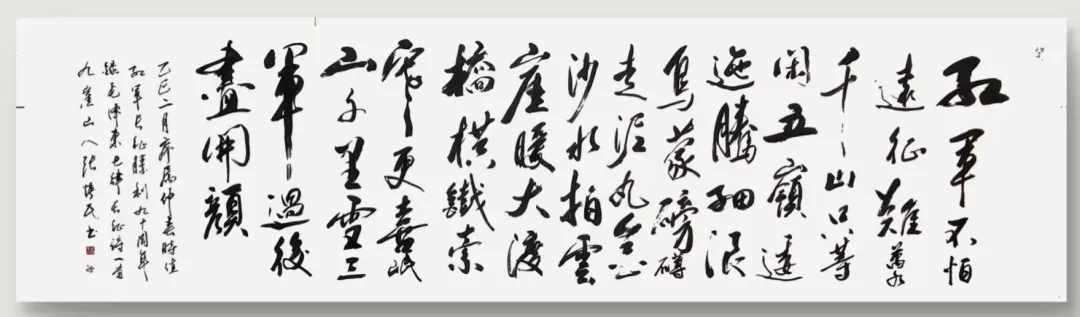 紅軍不怕
遠征難萬水
千山只等
閑五嶺逶
迤騰細浪
烏蒙磅礴
走泥丸金
沙水拍雲
崖暖大渡
橋橫鐵索
寒更喜岷
山千里雪三
軍過後
盡開顏
乙巳二月序屬仲春時值
紅軍長征勝利九十周年
錄毛澤東七律長征詩一首
山人張民書